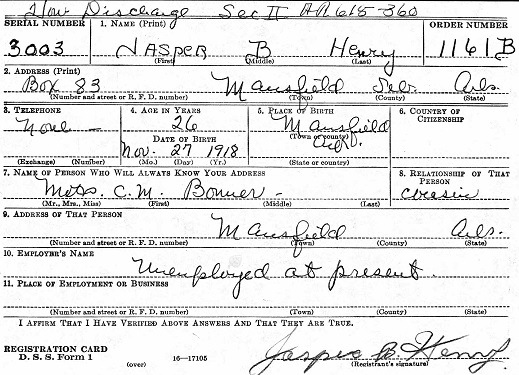 Hon Discharge Sec II AR 615-360
SERIAL NUMBER 1. NAME (Print) ORDER NUMBER
3003 JASPER B Henry 1161B
(First) (Middle) (Last)
2. ADDRESS (Print)
Box 83 Mansfield Seb. Ark.
(Number and street or R. F. D. number) (Town) (County) (State)
3. TELEPHONE 4. AGE IN YEARS 5. PLACE OF BIRTH 6. COUNTRY OF CITIZENSHIP
None - 26 Mansfield
(Town or county)
DATE OF BIRTH Ark.
Nov. 27 1918
(Exchange) (Number) (Mo.) (Day) (Yr.) (State or country)
7. NAME OF PERSON WHO WILL ALWAYS KNOW YOUR ADDRESS 8. RELATIONSHIP OF THAT PERSON
C. M. Bonner - cousin
(Mr., Mrs., Miss) (First) (Middle) (Last)
9. ADDRESS OF THAT PERSON
Mansfield Ark.
(Number and street or R. F. D. number) (Town) (County) (State)
10. EMPLOYER'S NAME
Unemployed at present.
11. PLACE OF EMPLOYMENT OR BUSINESS
(Number and street or R. F. D. number) (Town) (County) (State)
I AFFIRM THAT I HAVE VERIFIED ABOVE ANSWERS AND THAT THEY ARE TRUE.
REGISTRATION CARD
D. S. S. Form 1 (over) 16—17105 Jasper B. Henry
(Registrant's signature)